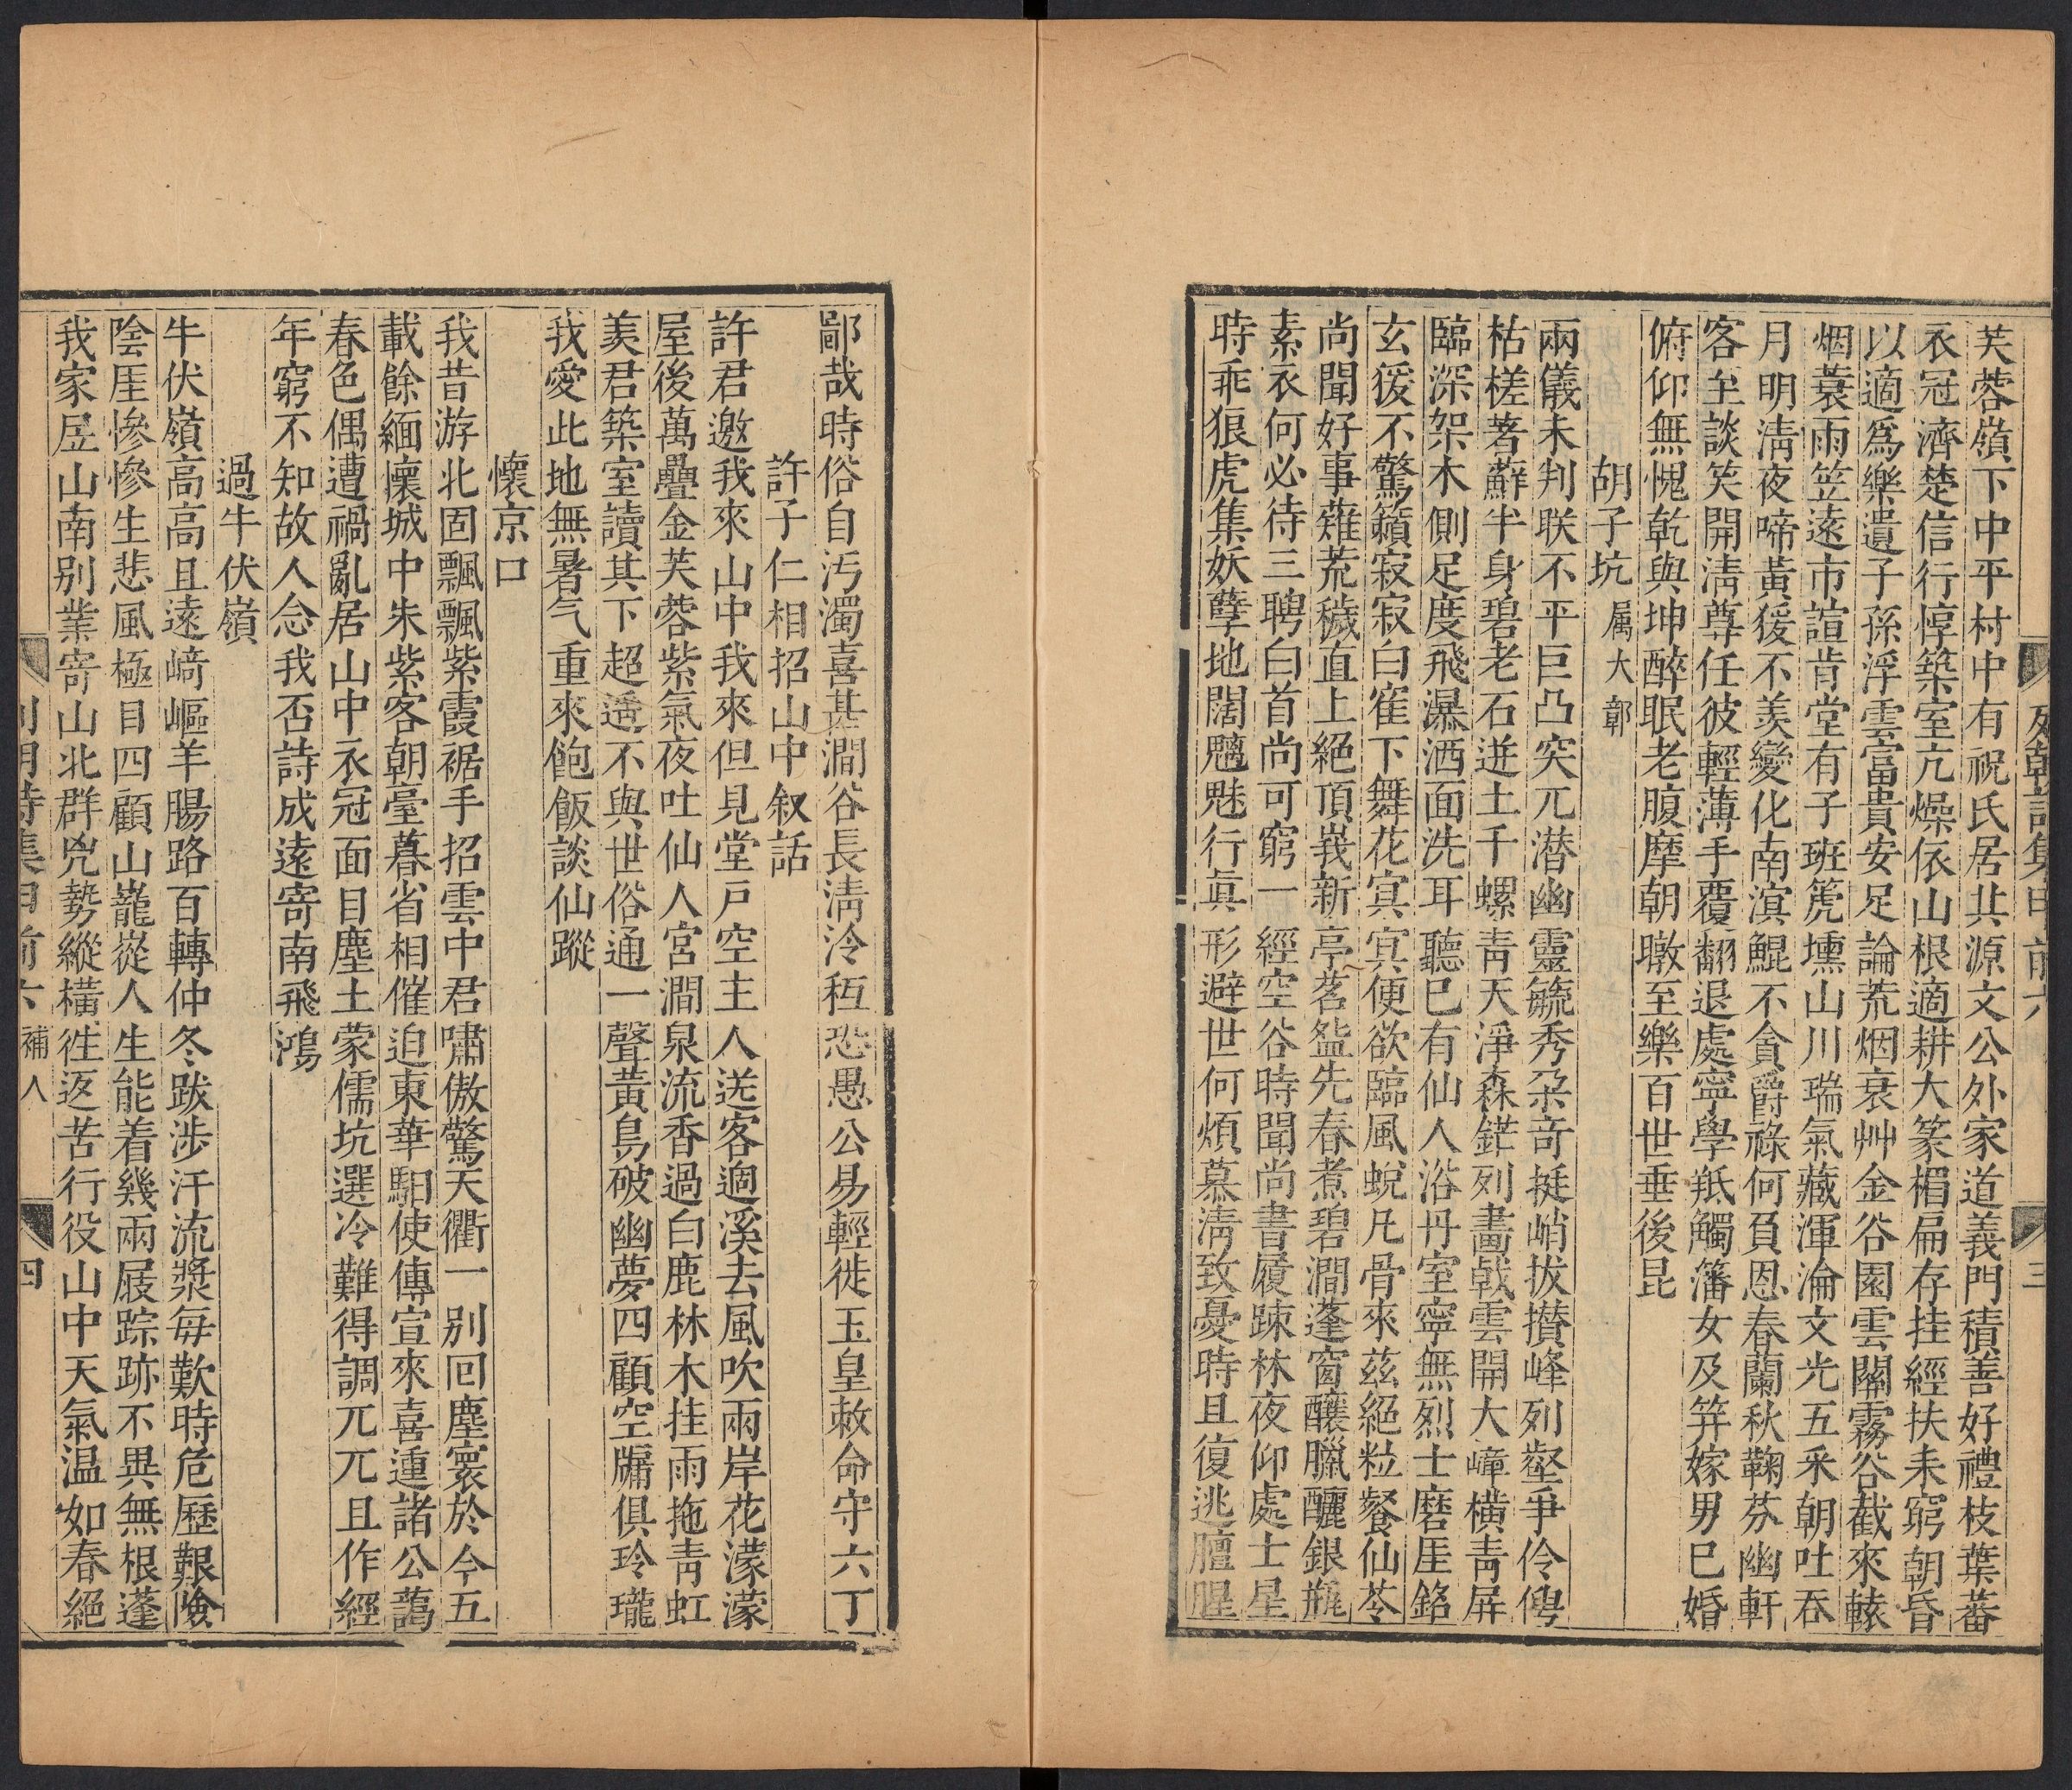 芙蓉嶺下中平村中有祝氏居其源文公外家道義門積善好禮枝葉蕃
衣冠濟楚信行惇築室亢燥依山根適耕大篆楣扁存挂經扶耒窮朝昏
以適爲樂遺子孫浮雲富貴安足論荒烟衰艸金谷園雲關霧谷截來轅
烟蓑雨笠遠市諠肯堂有子班箎壎山川瑞氣藏渾淪文光五采朝吐吞
月明淸夜啼黃猨不羨變化南溟鯤不貪爵祿何負恩春蘭秋鞠芬幽軒
客至談笑開淸尊任彼輕薄手覆翻退處寧學羝觸藩女及笄嫁男巳婚
俯仰無愧乾與坤醉眠老腹摩朝暾至樂百世垂後昆
胡子坑 属大鄣
兩儀未判联不平巨凸突兀潜幽靈毓秀朶竒挺峭拔攅峰列壑爭伶俜
枯槎著蘚半身碧老石迸土千螺青天淨森鋩列畵戟雲開大嶂横青屏
臨深架木側足度飛瀑洒面洗耳聽巳有仙人浴丹室寧無烈士磨厓銘
玄猨不驚籟寂寂白寉下舞花㝠㝠便欲臨風蛻凡骨來茲絕粒餐仙苓
尚聞好事薙荒穢直上絕頂峩新亭茗盌先春煮碧澗蓬窗釀臘釃銀瓶
素衣何必待三聘白首尚可窮一經空谷時聞尚書履踈林夜仰處士星
時乖狼虎集妖孽地闊魑魅行眞形避世何煩慕淸致憂時且復逃膻腥
列朝詩集甲前六 三
鄙哉時俗自汚濁喜甚澗谷長淸泠秖恐愚公易輕徙玉皇敕命守六丁
許子仁相招山中叙話
許君邀我來山中我來但見堂戸空主人送客過溪去風吹兩岸花濛濛
屋後萬疊金芙蓉紫氣夜吐仙人宮澗泉流香過白鹿林木挂雨拖靑虹
羨君築室讀其下超遥不與世俗通一聲黃鳥破幽夢四顧空牖俱玲瓏
我愛此地無暑气重來飽飯談仙蹤
懷京口
我昔游北固飄飄紫霞裾手招雲中君嘯傲驚天衢一别回塵寰於今五
載餘緬懷城中朱紫客朝臺暮省相催迫東華馹使傳宣來喜連諸公薦
春色偶遭禍亂居山中衣冠面目塵土蒙儒坑選冷難得調兀兀且作經
年窮不知故人念我否詩成遠寄南飛鴻
過牛伏嶺
牛伏嶺高高且遠崎嶇羊腸路百轉仲冬跋涉汗流漿每歎時危歷艱險
陰厓慘慘生悲風極目四顧山巃嵷人生能着幾兩屐踪跡不異無根蓬
我家屋山南别業寄山北群兇勢縱橫徃返苦行役山中天氣温如春絕
列朝詩集甲前六 補人 四